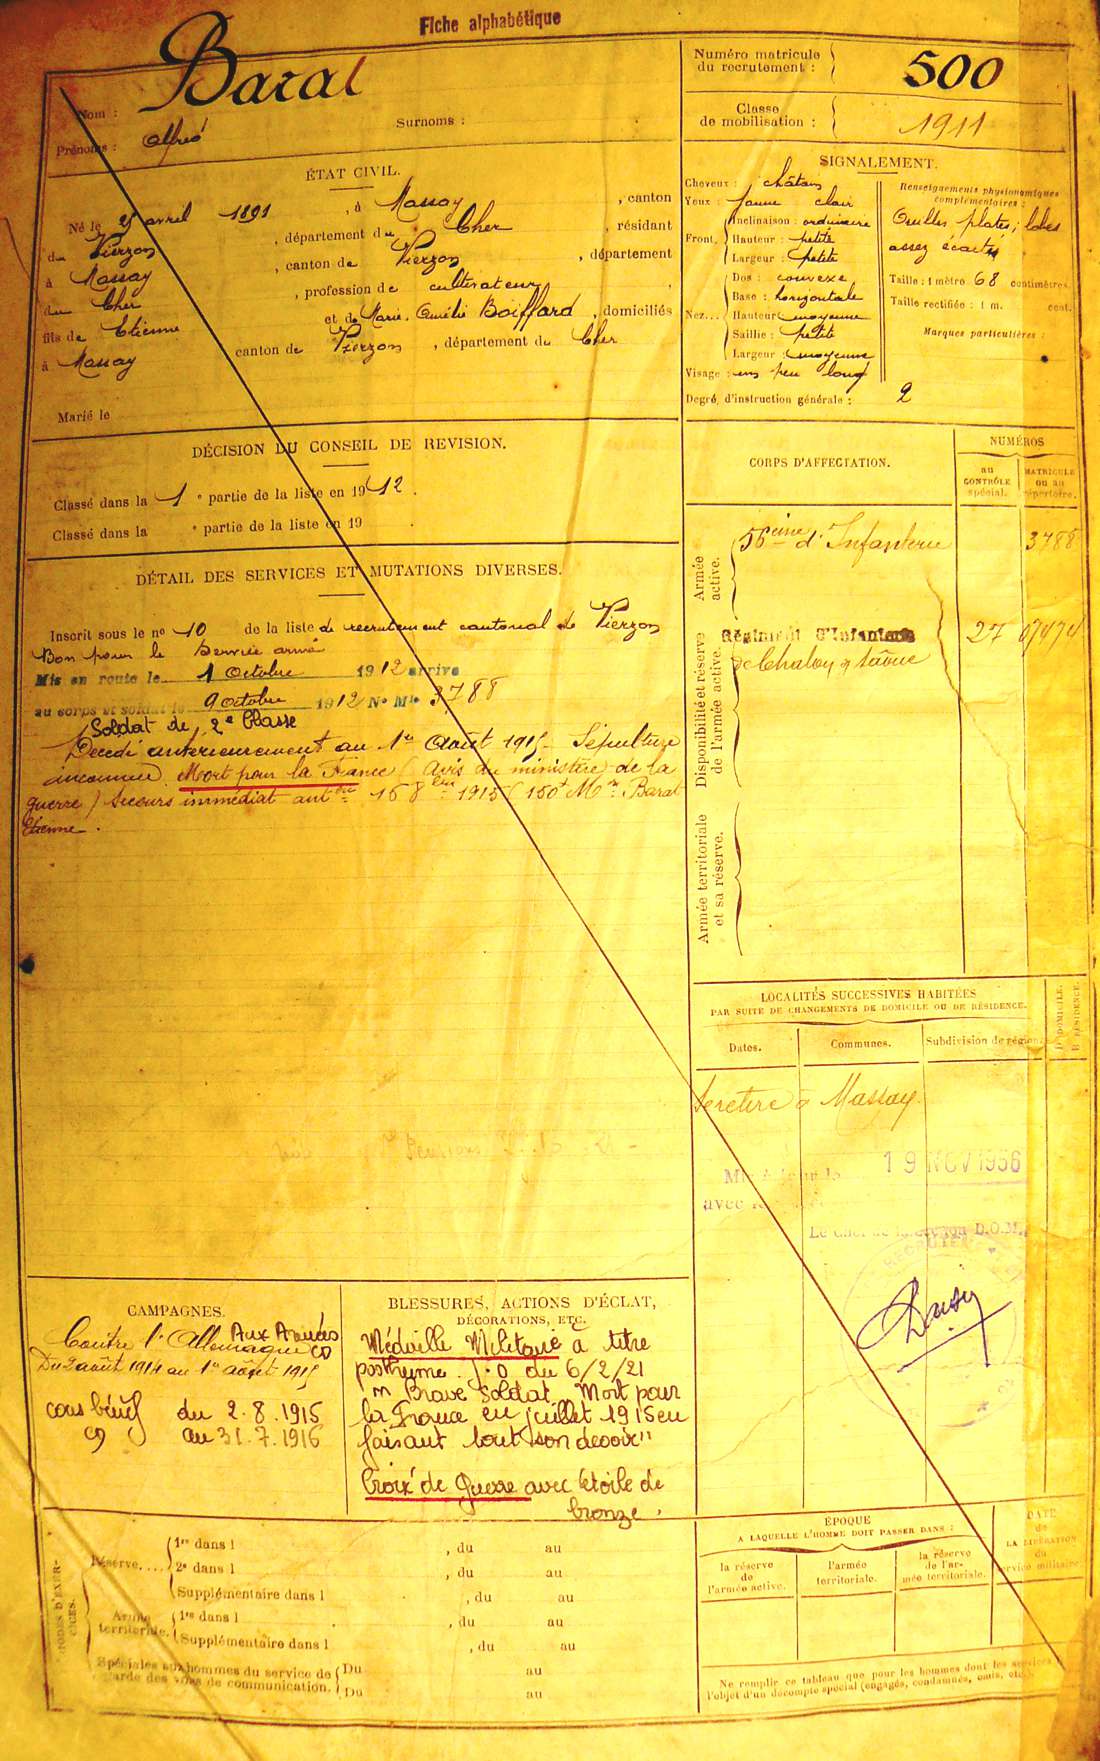 Fiche alphabétique
Nom : Barat
Prénoms : Alfred
Surnoms :
Numéro matricule
du recrutement : 500
Classe
de mobilisation : 1911
ÉTAT CIVIL.
Né le avril 1891, à Massay, canton
du Vierzon, département du Cher, résidant
à Massay, canton de Vierzon, département
du Cher, profession de cultivateur,
fils de Etienne et de Marie Amélie Boiffard, domiciliés
à Massay canton de Vierzon, département du Cher
Marié le
SIGNALEMENT.
Cheveux : châtain
Yeux : jaune clair
Front. Inclinaison : ordinaire
Hauteur : petite
Largeur : petite
Nez... Dos : convexe
Base : horizontale
Hauteur : moyenne
Saillie : petite
Largeur : moyenne
Visage : un peu long
Degré d'instruction générale : 2
Renseignements physionomiques
complémentaires :
Oreilles plates ; lobes
assez écartés
Taille : 1 mètre 68 centimètres
Taille rectifiée : 1 m. cent.
Marques particulières :
DÉCISION DU CONSEIL DE REVISION.
Classé dans la 1e partie de la liste en 1912.
Classé dans la e partie de la liste en 19
DÉTAIL DES SERVICES ET MUTATIONS DIVERSES.
Inscrit sous le no 10 de la liste de recrutement cantonal de Vierzon
Bon pour le Service armé
Mis en route le 1 Octobre 1912 arrivé
au corps et soldat le 9 octobre 1912 No Mle 3788
Soldat de 2e Classe
Décédé antérieurement au 1er Août 1915 - Sépulture
inconnue. Mort pour la France (Avis du ministère de la
guerre) Secours immédiat 150f Mr Barat
Etienne.
CORPS D'AFFECTATION.
NUMÉROS
au
CONTRÔLE
spécial.
MATRICULE
ou au
répertoire.
Armée
active.
56eme d'Infanterie 3788
Disponibilité et réserve
de l'armée active.
Régiment d'Infanterie 27
de Chalon s/ Saône
Armée territoriale
et sa réserve.
LOCALITÉS SUCCESSIVES HABITÉES
PAR SUITE DE CHANGEMENTS DE DOMICILE OU DE RÉSIDENCE.
Dates.
Communes.
Subdivision de région.
D. DOMICILE.
R. RÉSIDENCE.
Se retire à Massay
19 NOV 1956
CAMPAGNES.
Contre l'Allemagne Aux Armées
Du 2 août 1914 au 1er août 1915
du 2.8.1915
au 31.7.1916
BLESSURES, ACTIONS D'ÉCLAT,
DÉCORATIONS, ETC.
Médaille Militaire à titre
posthume. J.O du 6/2/21
"Brave Soldat. Mort pour
la France en juillet 1915 en
faisant tout son devoir"
Croix de Guerre avec étoile de
bronze.
Réserve.... 1re dans l , du au
2e dans l , du au
Supplémentaire dans l , du au
Armée
territoriale. 1re dans l , du au
Supplémentaire dans l , du au
Spéciales aux hommes du service de
garde des voies de communication. Du au
Du au
ÉPOQUE
A LAQUELLE L'HOMME DOIT PASSER DANS :
la réserve
de
l'armée active.
l'armée
territoriale.
la réserve
de l'ar-
mée territoriale.
DATE
de
LA LIBÉRATION
du
service militaire
Ne remplir ce tableau que pour les hommes dont les services
l'objet d'un décompte spécial (engagés, condamnés, omis, etc.).